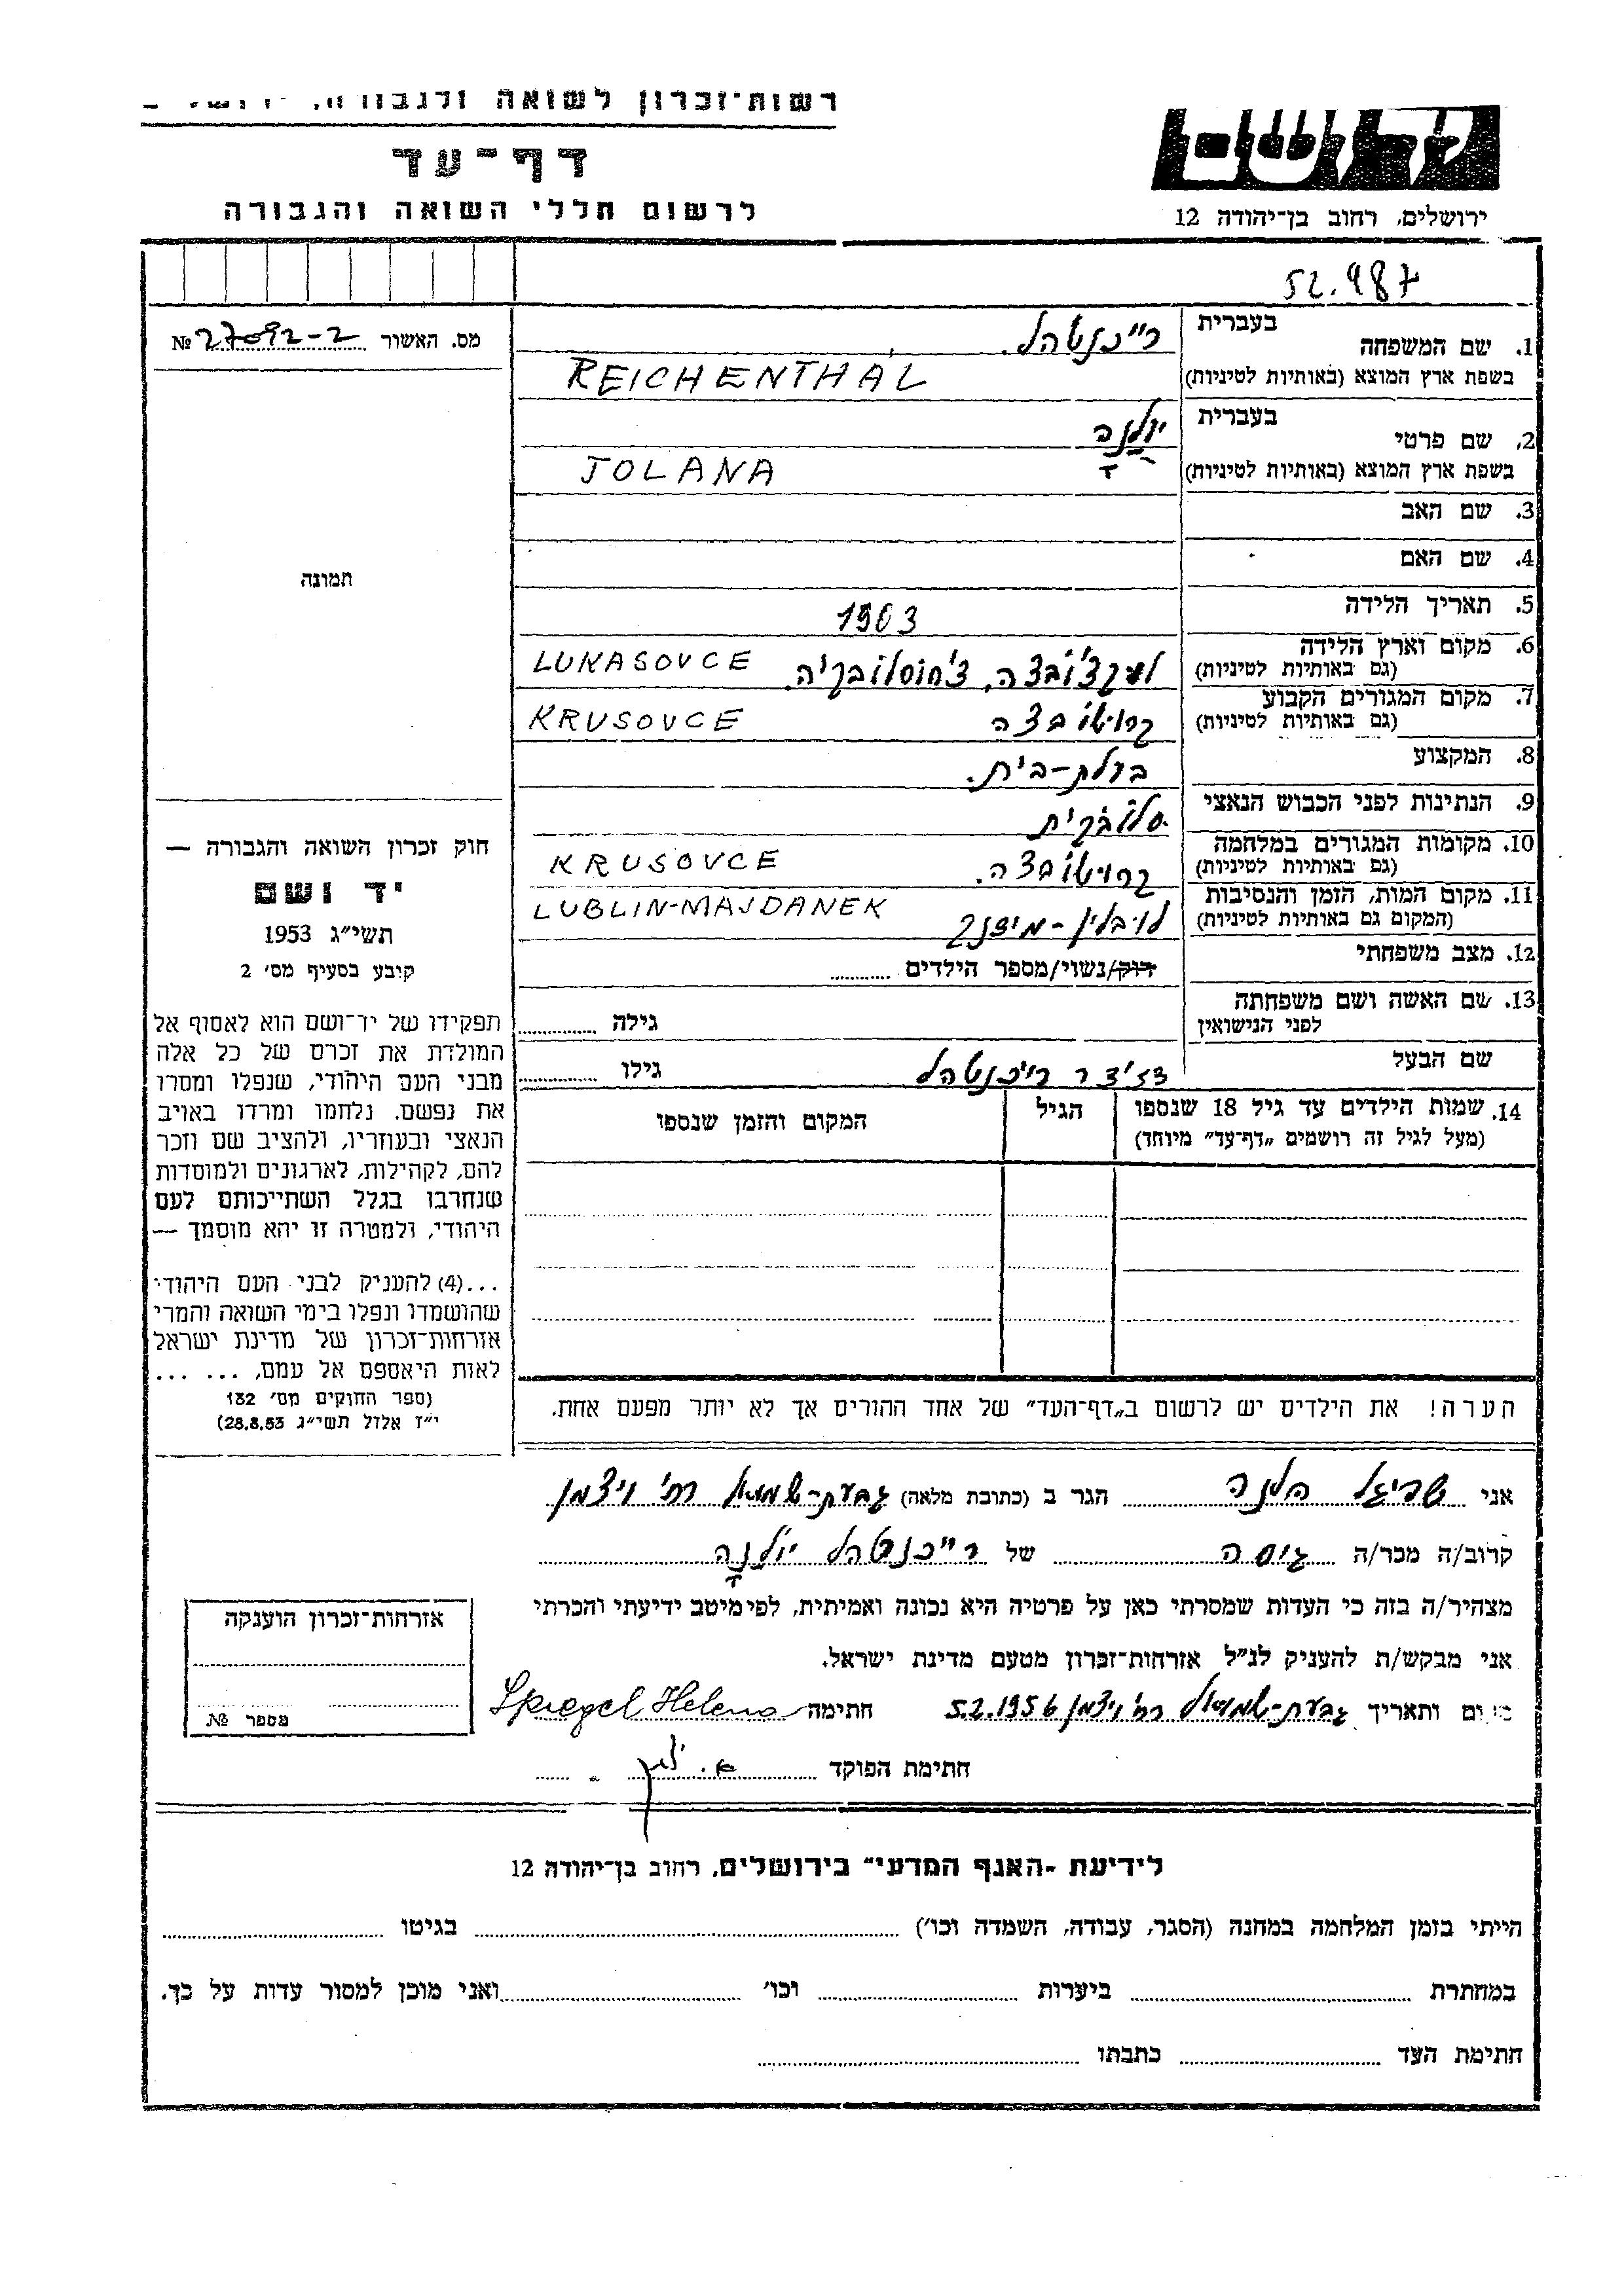 רשות־זכרון לשואה ולגבורה,
דף־עד
לרשום חללי השואה והגבורה
יד ושם
ירושלים, רחוב בן־יהודה 12
52.987
מס. האשור № 27092-2
1. שם המשפחה בעברית רייכנטהל.
בשפת ארץ המוצא (באותיות לטיניות) REICHENTHAL
2. שם פרטי בעברית יולנה
בשפת ארץ המוצא (באותיות לטיניות) JOLANA
3. שם האב
4. שם האם
5. תאריך הלידה 1903
6. מקום וארץ הלידה (גם באותיות לטיניות) צ'חוסלובקיה. LUKASOVCE
7. מקום המגורים הקבוע (גם באותיות לטיניות) קרושובצה KRUSOVCE
8. המקצוע בעלת-בית.
9. הנתינות לפני הכבוש הנאצי סלובקית
10. מקומות המגורים במלחמה (גם באותיות לטיניות) קרושובצה. KRUSOVCE
11. מקום המות, הזמן והנסיבות (המקום גם באותיות לטיניות) לובלין-מידנק LUBLIN-MAJDANEK
12. מצב משפחתי רוק/נשוי/מספר הילדים
13. שם האשה ושם משפחתה לפני הנישואין גילה
שם הבעל רייכנטהל גילו
14. שמות הילדים עד גיל 18 שנספו (מעל לגיל זה רושמים „דף־עד” מיוחד) הגיל המקום והזמן שנספו
הערה! את הילדים יש לרשום ב„דף־העד” של אחד ההורים אך לא יותר מפעם אחת.
תמונה
חוק זכרון השואה והגבורה —
יד ושם
תשי״ג 1953
קובע בסעיף מס׳ 2
תפקידו של יד־ושם הוא לאסוף אל
המולדת את זכרם של כל אלה
מבני העם היהודי, שנפלו ומסרו
את נפשם, נלחמו ומרדו באויב
הנאצי ובעוזריו, ולהציב שם וזכר
להם, לקהילות, לארגונים ולמוסדות
שנחרבו בגלל השתייכותם לעם
היהודי, ולמטרה זו יהא מוסמך —
...(4) להעניק לבני העם היהודי
שהושמדו ונפלו בימי השואה והמרי
אזרחות־זכרון של מדינת ישראל
לאות היאספם אל עמם, ... ...
(ספר החוקים מס׳ 132
י״ז אלול תשי״ג 28.8.53)
אני שפיגל הלנה הגר ב (כתובת מלאה) גבעת-שמואל רח' ויצמן
קרוב/ה מכר/ה גיסה של רייכנטהל יולנה
מצהיר/ה בזה כי העדות שמסרתי כאן על פרטיה היא נכונה ואמיתית, לפי מיטב ידיעתי והכרתי
אני מבקש/ת להעניק לנ״ל אזרחות־זכרון מטעם מדינת ישראל.
ותאריך גבעת-שמואל רח' ויצמן 5.2.1956 חתימה Spiegel Helena
חתימת הפוקד
אזרחות־זכרון הוענקה
מספר №
לידיעת „האגף המדעי” בירושלים, רחוב בן־יהודה 12
הייתי בזמן המלחמה במחנה (הסגר, עבודה, השמדה וכו׳) בגיטו
במחתרת ביערות וכו׳ ואני מוכן למסור עדות על כך.
חתימת העד כתבתו